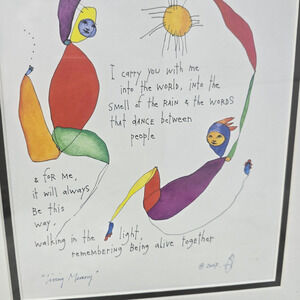 I carry you with me
into the world, into the
smell of the rain & the words
that dance between
people
& for me,
it will always
be this
way,
walking in the light,
remembering being alive together
"Living Memory"